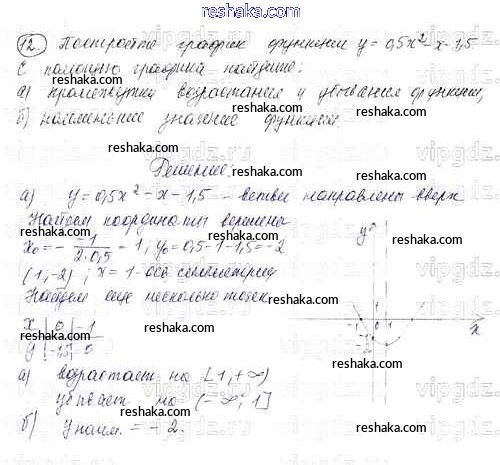 reshka.com
12. Постройте график функции y = 0,5x² - x - 1,5
С помощью графика найдите:
а) промежутки возрастания и убывания функции;
б) наименьшее значение функции.
Решение.
а) y = 0,5x² - x - 1,5 - ветви направлены вверх
Найдем координаты вершины
x₀ = - -1/2·0,5 = 1, y₀ = 0,5 - 1 - 1,5 = -2
(1, -2); x = 1 - ось симметрии
Найдем еще несколько точек
x | 0 | -1
y | -1,5 | 0
а) возрастает на [1, +∞)
убывает на (-∞; 1]
б) y наим. = -2.
y
1
-1 0 1 x
-1
-2
reshaka.com
reshaka.com
reshaka.com
reshaka.com
reshaka.com
reshaka.com
reshaka.com
reshaka.com
reshaka.com
vipgdz.